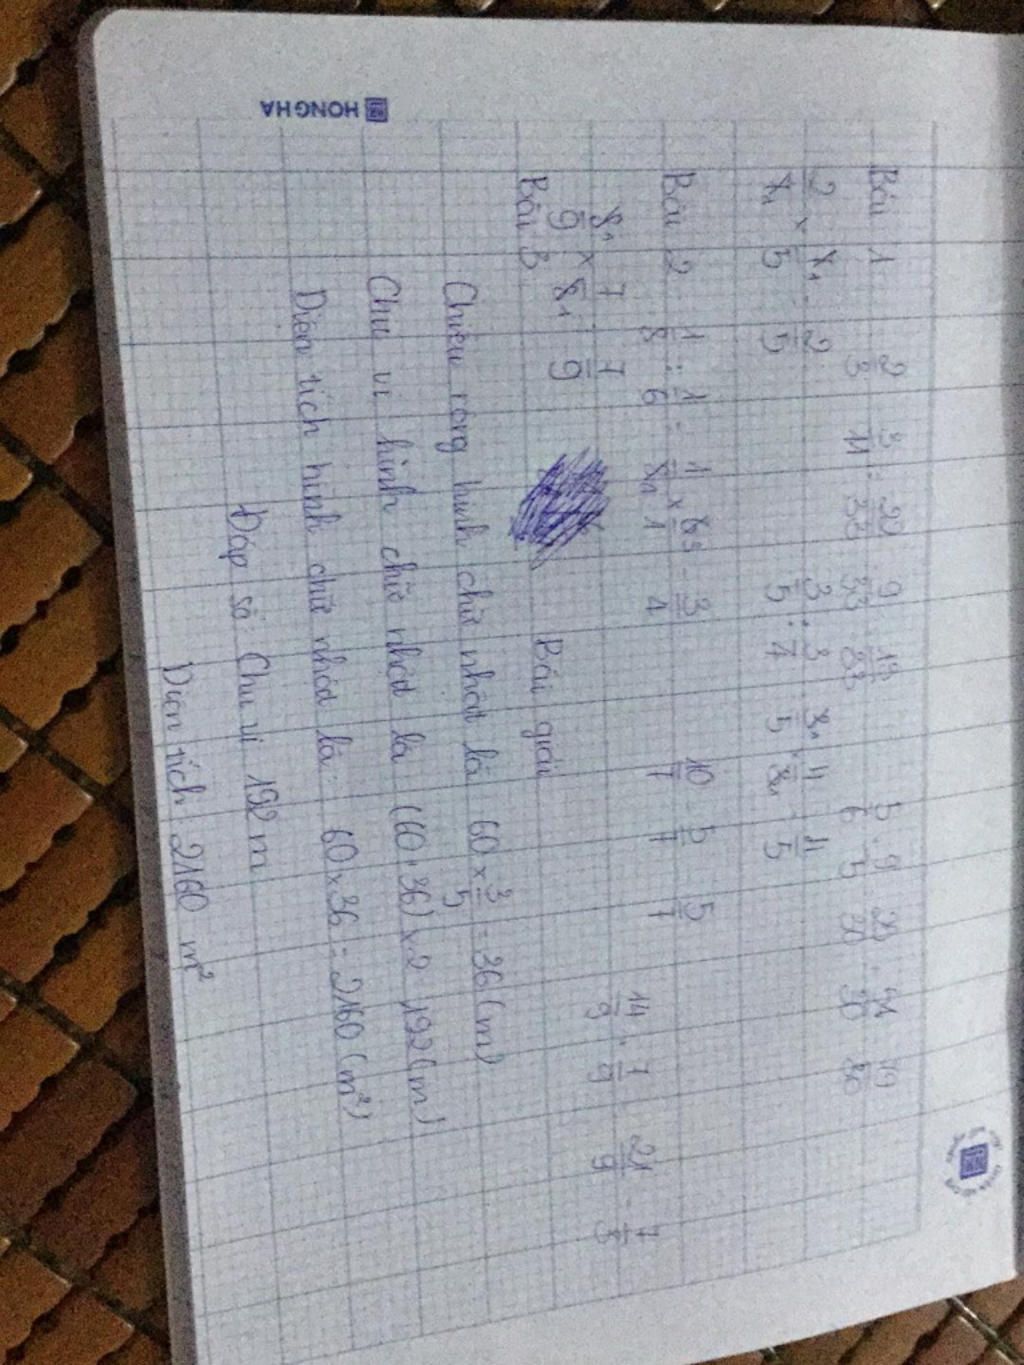 HONG HA
Bài 1 2/3 3/11 = 22/33 9/33 13/33 5/6 9/5 25/30 54/30
2/7 × 7/5 2/5 3/5 : 3/4 5 4/5
Bài 2 1/8 : 1/6 = 1/8 × 6/1 = 3/4 10/7 5/7 5/7
8/9 × 7/8 7/9 14/9 7/9 21/9 7/3
Bài 3 Bài giải
Chiều rộng hình chữ nhật là 60 × 3/5 = 36 (m)
Chu vi hình chữ nhật là (60 + 36) × 2 = 192 (m)
Diện tích hình chữ nhật là: 60 × 36 = 2160 (m²)
Đáp số: Chu vi 192 m
Diện tích: 2160 m²